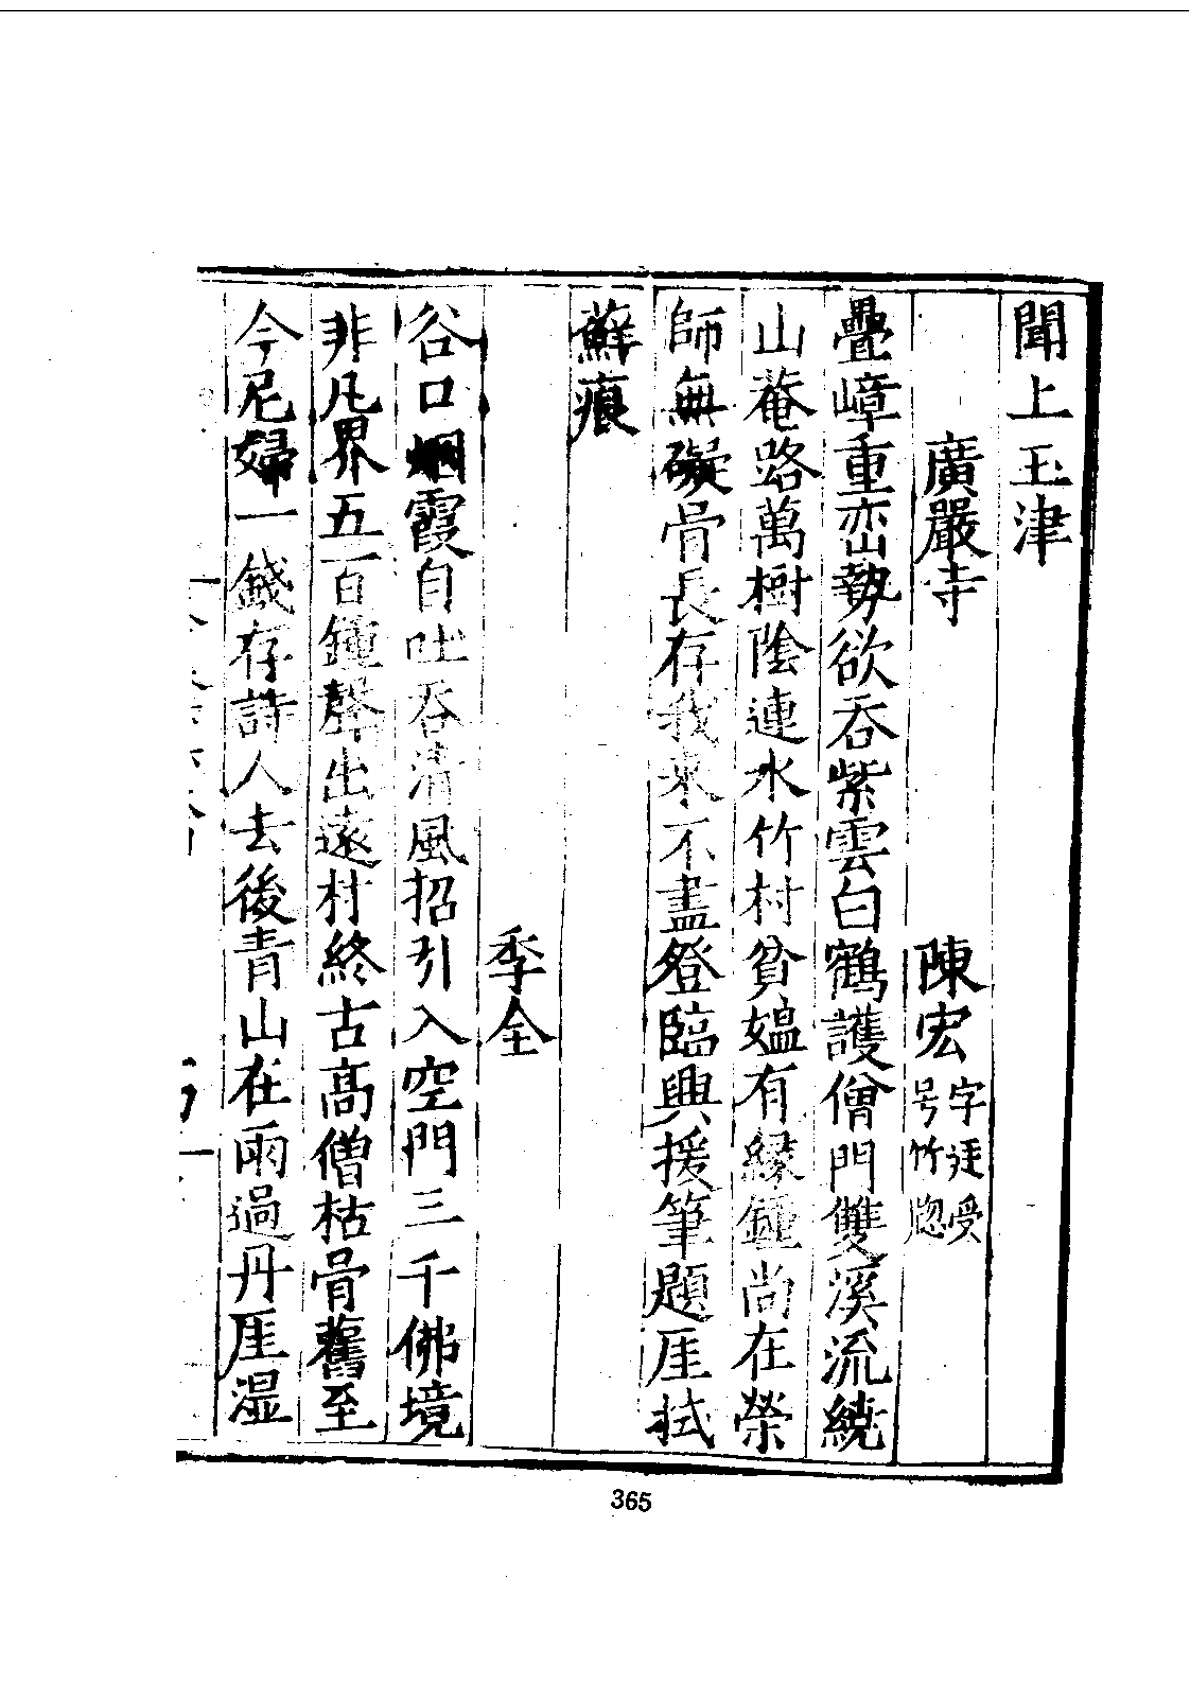 聞上玉津
廣嚴寺　陳宏　字廷受　号竹牎
疊嶂重巒勢欲吞紫雲白鶴護僧門雙溪流繞
山菴路萬樹陰連水竹村貧媼有緣鍾尚在榮
師無礙骨長存我來不盡登臨興援筆題厓拭
蘚痕
季全
谷口烟霞自吐吞清風招引入空門三千佛境
非凡界五百鍾聲出遠村終古高僧枯骨舊至
今尼婦一錢存詩人去後青山在雨過丹厓濕
365